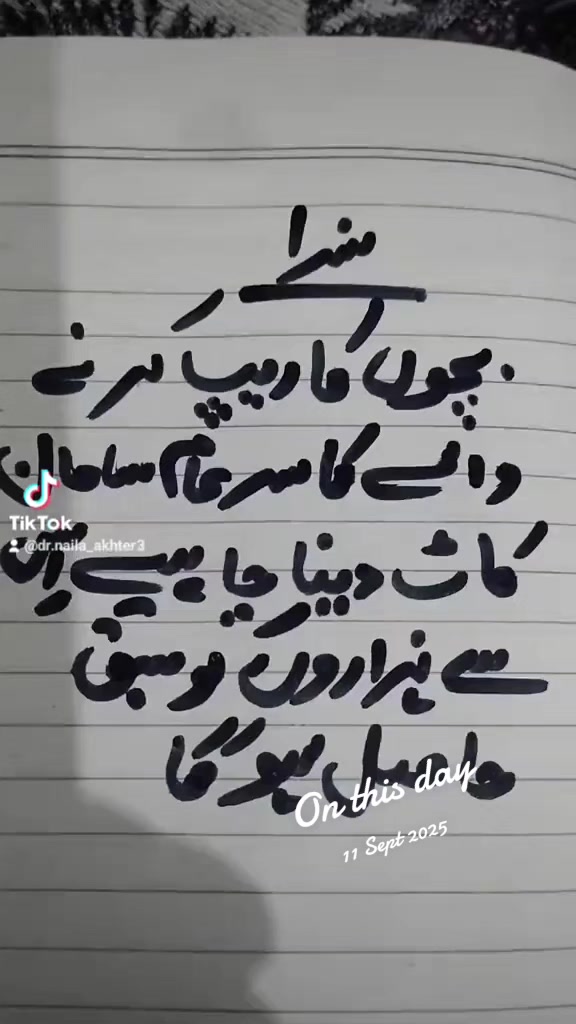 سزا
بچوں کا ریپ کرنے
والے کا سرعام سامان
کاٹ دینا چاہیے اِن
سے ہزاروں کو سبق
حاصل ہو گا
TikTok
@dr.naila_akhter3
On this day
11 Sept 2025